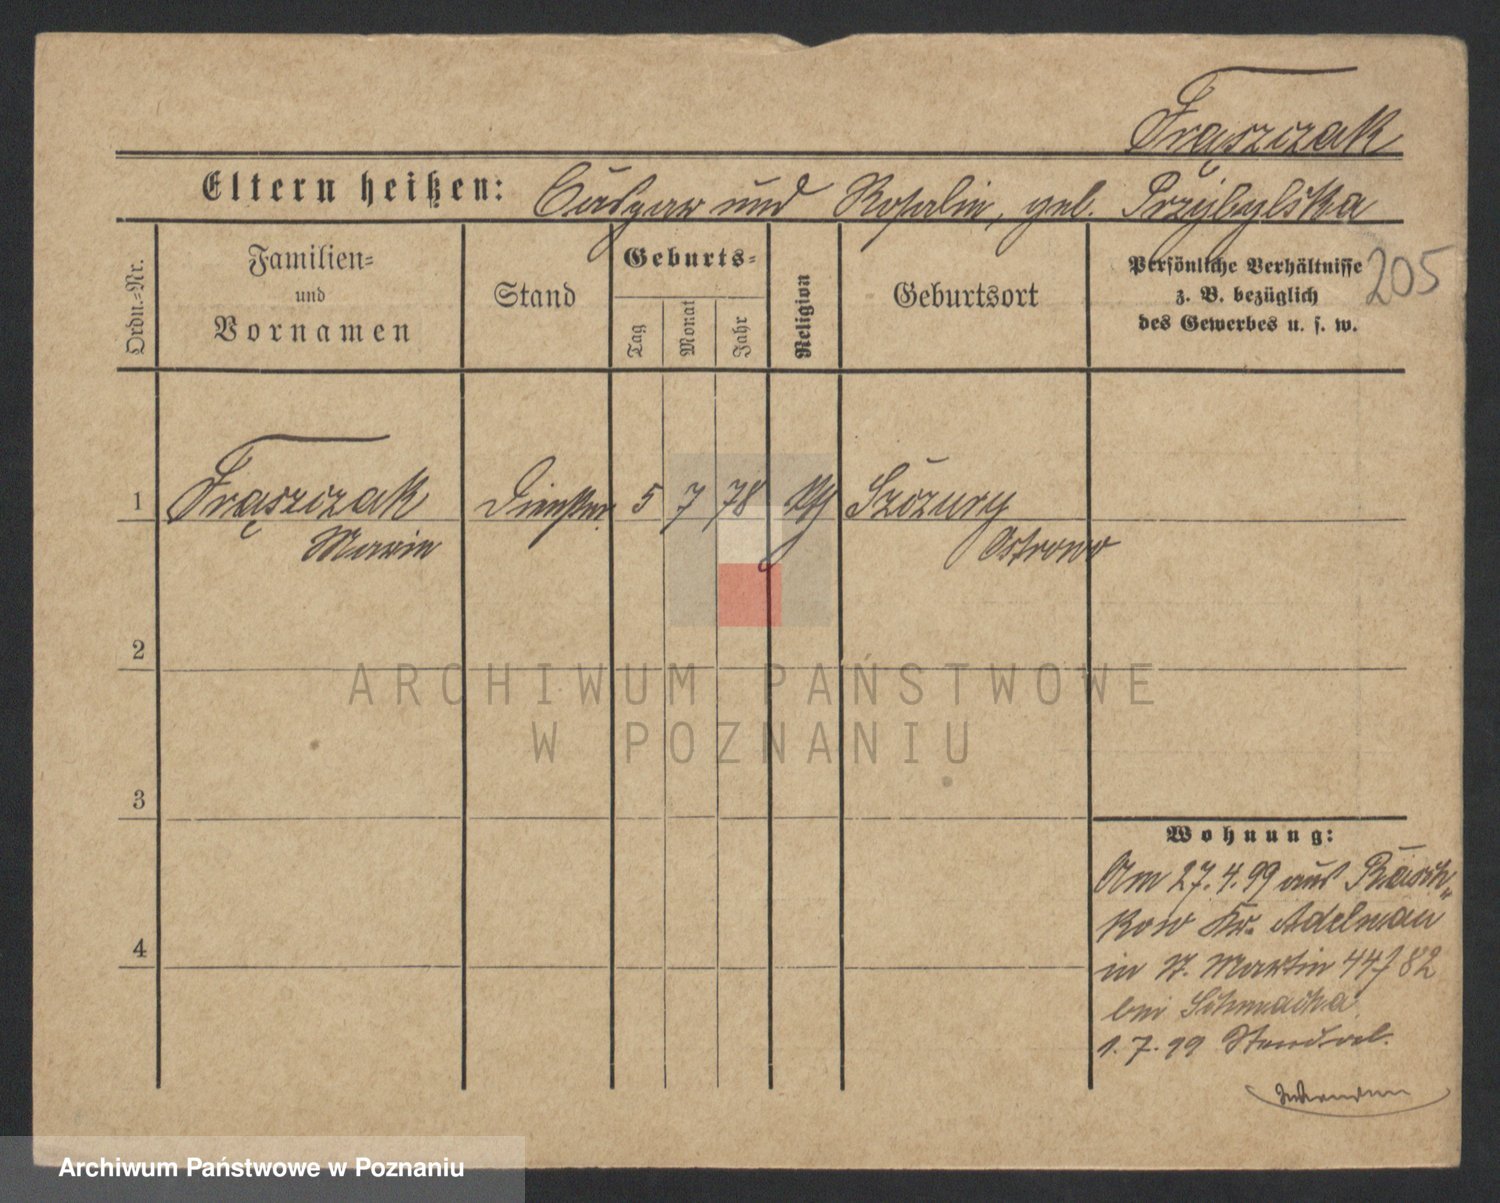 Frąszczak
Eltern heißen: Caspar und Rosalie, geb. Przybylska
Ordn.-Nr.
Familien-
und
Vornamen
Stand
Geburts-
Tag
Monat
Jahr
Religion
Geburtsort
Persönliche Verhältnisse
z. B. bezüglich
des Gewerbes u. s. w.
205
1 Frąszczak Dienstm. 5 7 78 kth Szczury
Marie Ostrowo
2
ARCHIWUM PAŃSTWOWE
W POZNANIU
3
Wohnung:
Am 27.4.99 aus Räsch-
kow Kr. Adelnau
in St. Martin 447 82
4
bei
1.7.99
Archiwum Państwowe w Poznaniu